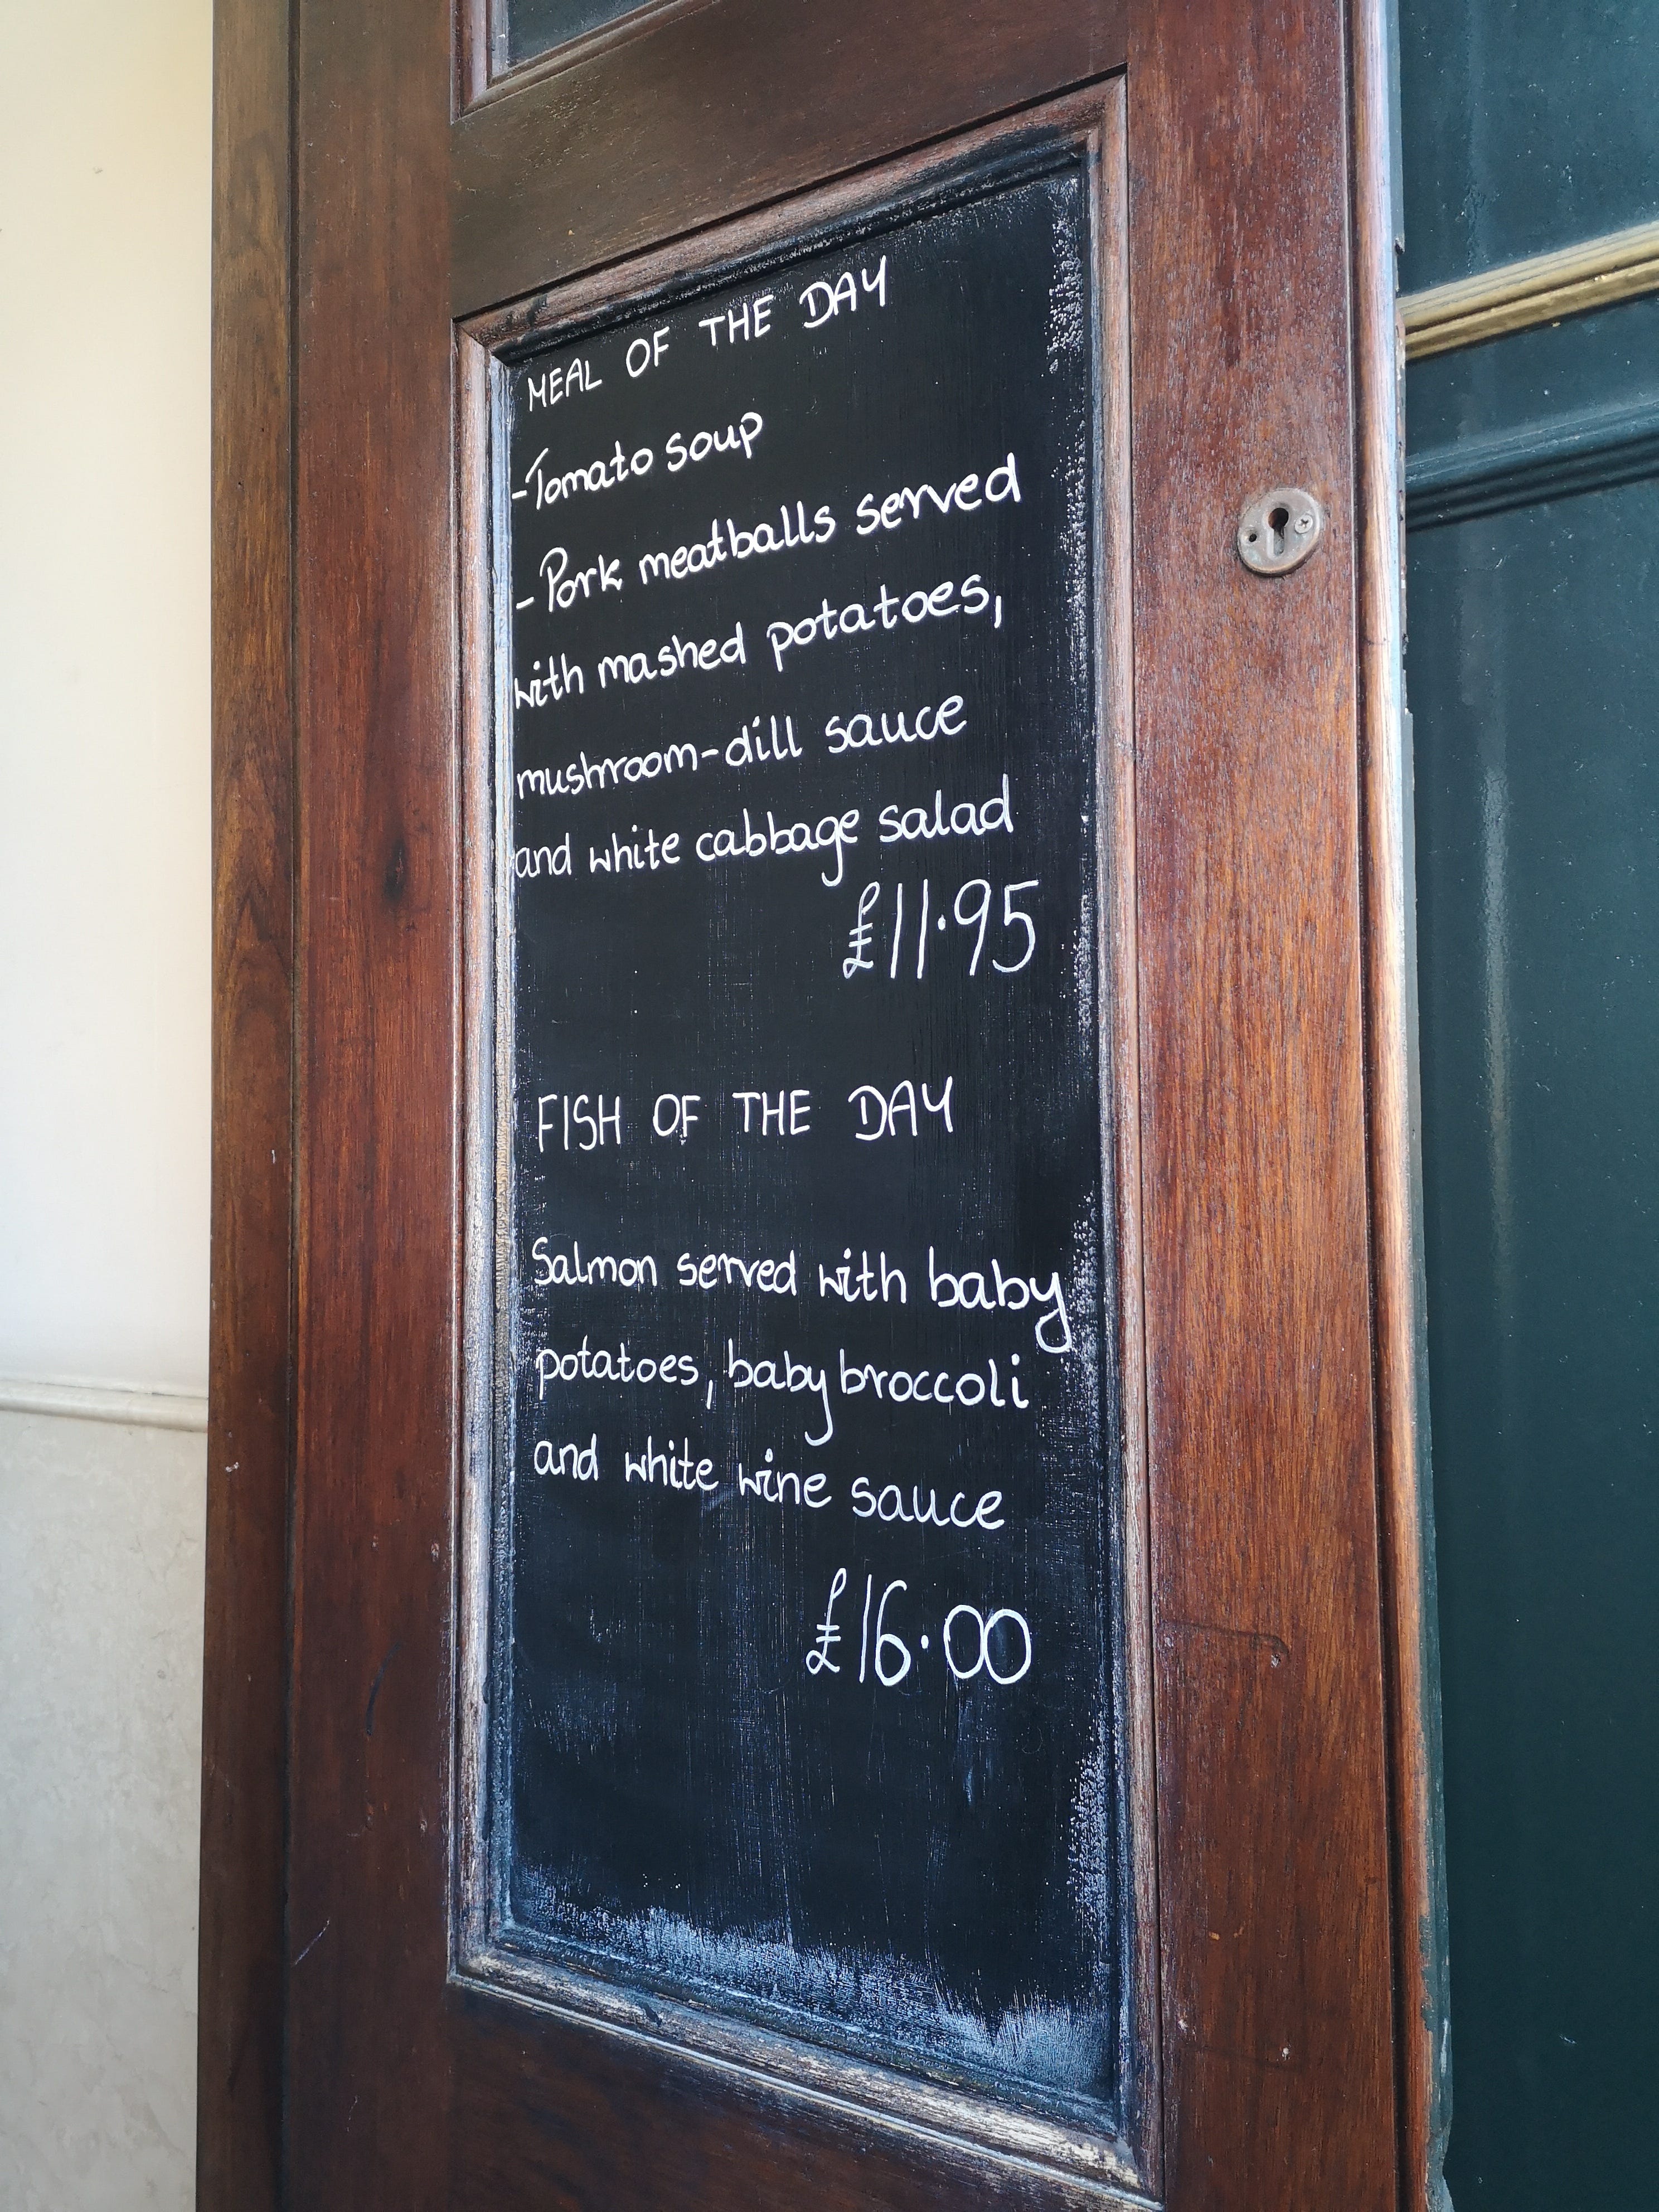 MEAL OF THE DAY
-Tomato soup
-Pork meatballs served
with mashed potatoes,
mushroom-dill sauce
and white cabbage salad
£11.95
FISH OF THE DAY
Salmon served with baby
potatoes, baby broccoli
and white wine sauce
£16.00